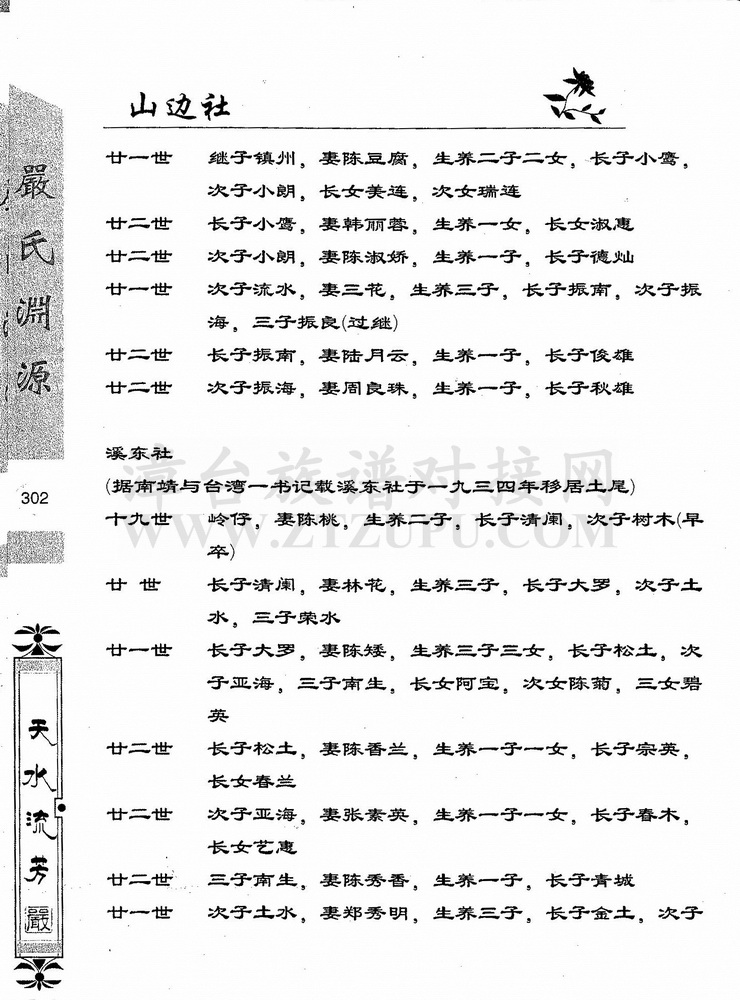 山边社
廿一世 继子镇州，妻陈豆腐，生养二子二女，长子小鹰，
次子小朗，长女美连，次女瑞连
廿二世 长子小鹰，妻韩丽蓉，生养一女，长女淑惠
廿二世 次子小朗，妻陈淑娇，生养一子，长子德灿
廿一世 次子流水，妻三花，生养三子，长子振南，次子振
海，三子振良(过继)
廿二世 长子振南，妻陆月云，生养一子，长子俊雄
廿二世 次子振海，妻周良珠，生养一子，长子秋雄
溪东社
(据南靖与台湾一书记载溪东社于一九三四年移居土尾)
十九世 岭仔，妻陈桃，生养二子，长子清阑，次子树木(早
卒)
廿 世 长子清阑，妻林花，生养三子，长子大罗，次子土
水，三子荣水
廿一世 长子大罗，妻陈矮，生养三子三女，长子松土，次
子亚海，三子南生，长女阿宝，次女陈菊，三女碧
英
廿二世 长子松土，妻陈香兰，生养一子一女，长子宗英，
长女春兰
廿二世 次子亚海，妻张素英，生养一子一女，长子春木，
长女艺惠
廿二世 三子南生，妻陈秀香，生养一子，长子青城
廿一世 次子土水，妻郑秀明，生养三子，长子金土，次子
嚴氏淵源
302
天水流芳
嚴
漳台族谱对接网
WWW.ZTZUPU.COM